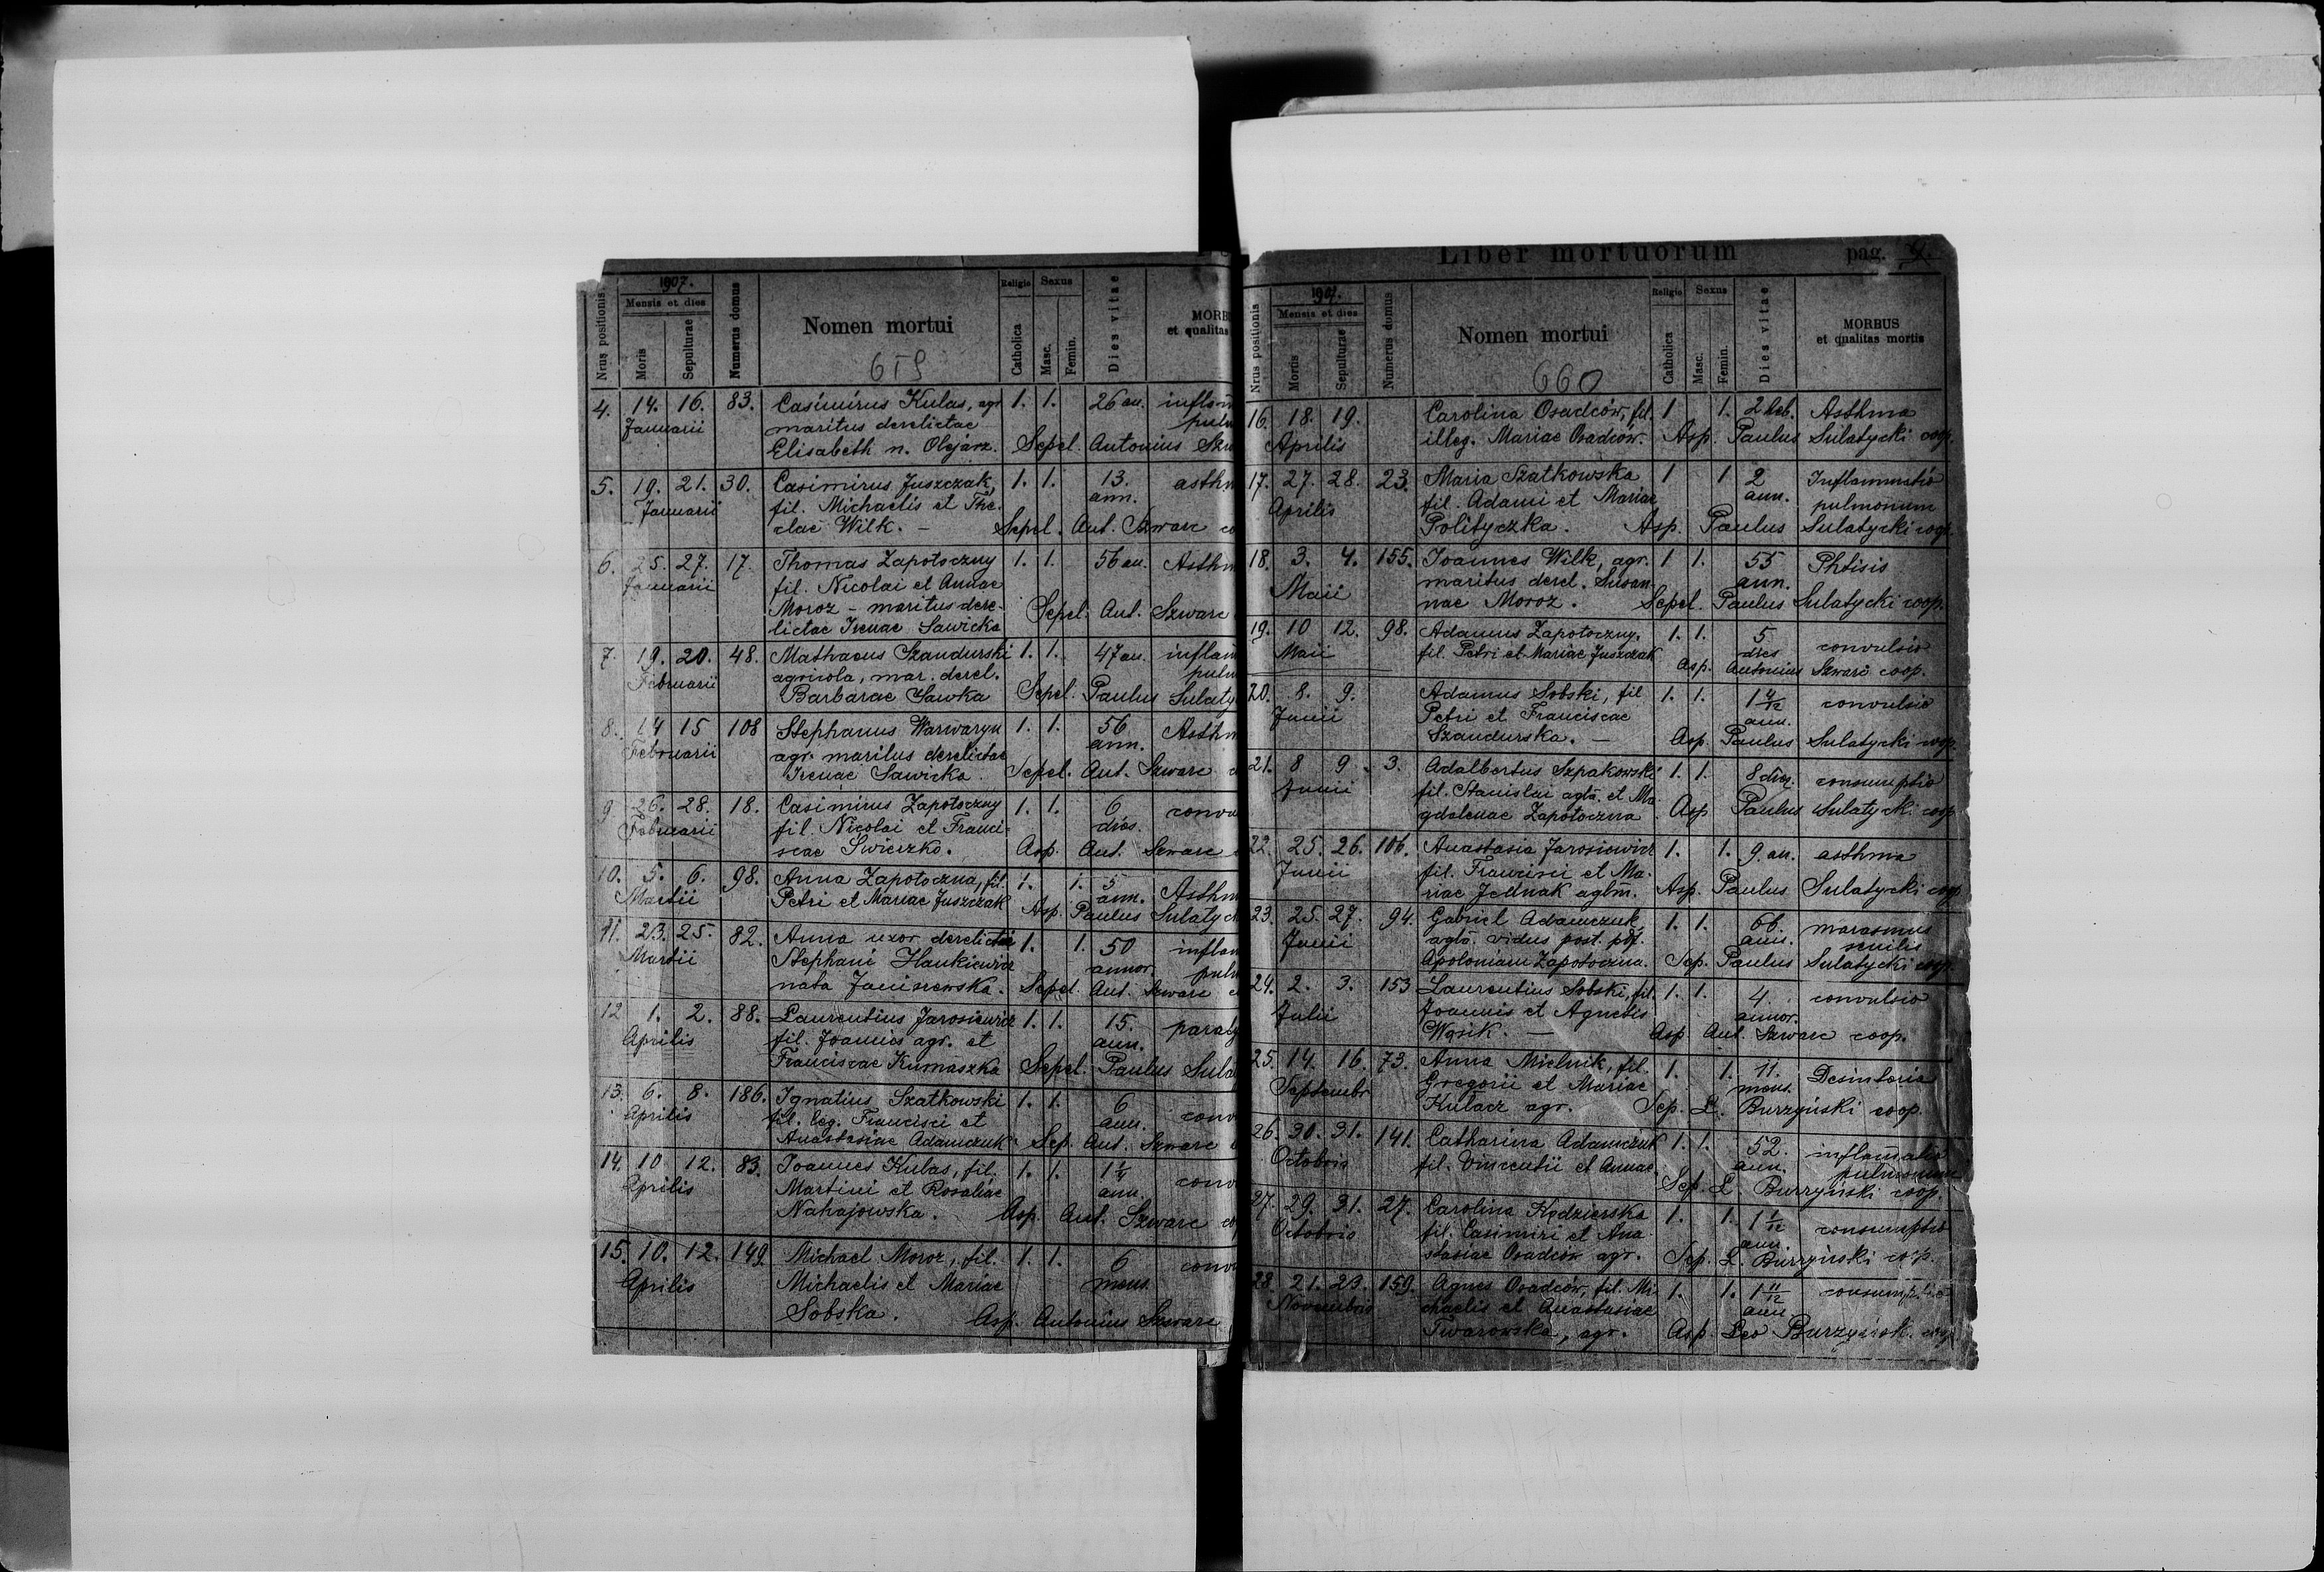 1907.
Nrus positionis
Mensis et dies
Moris
Sepulturae
Numerus domus
Nomen mortui
Religio
Catholica
Sexus
Masc.
Femin.
Dies vitae
MORB
et qualitas
659
4. 14. 16. 83. Casimirus Kulas, agr. 1. 1. 26 an. inflam
Januarii maritus derelictae pulm
Elisabeth n. Olejarz. Sepel. Antonius Szw
5. 19. 21. 30. Casimirus Juszczak, 1. 1. 13. asthm
Januarii fil. Michaelis et The- ann.
clae Wilk. – Sepel. Ant. Szwarc co
6. 25. 27. 17. Thomas Zapotoczny 1. 1. 56 an. Asthm
Januarii fil. Nicolai et Annae
Moroz – maritus dere- Sepel. Ant. Szwarc
lictae Irenae Sawicka
7. 19. 20. 48. Mathaeus Szandurski 1. 1. 47 an. inflam
Februarii agricola, mar. derel. pulm
Barbarae Hawka Sepel. Paulus Sulaty
8. 14 15 108 Stephanus Warwaryn 1. 1. 56 Asthm
Februarii agr. maritus derelictae ann.
Irenae Sawicka. Sepel. Ant. Szwarc c
9. 26. 28. 18. Casimirus Zapotoczny 1. 1. 6 convu
Februarii fil. Nicolai et Franci- dies.
scae Swieczko. Asp. Ant. Szwarc
10. 5. 6. 98. Anna Zapotoczna, fil. 1. 1. 5 Asthm
Martii Petri et Mariae Juszczak ann.
Asp. Paulus Sulatyck
11. 23. 25. 82. Anna uxor derelicta 1. 1. 50 inflam
Martii Stephani Hankiewicz annor. pulm
nata Janiszewska. Sepel. Ant. Szwarc c
12 1. 2. 88. Laurentius Jarosiewicz 1. 1. 15. paraly
Aprilis fil. Joannis agr. et ann.
Franciscae Kumaszka Sepel. Paulus Sula
13. 6. 8. 186. Ignatius Szatkowski 1. 1. 6 conv
Aprilis fil. leg. Francisci et ann.
Anastasiae Adamczuk. Sep. Ant. Szwarc
14. 10 12. 83. Joannes Kulas, fil. 1. 1. 1 1/4 conv
Aprilis Martini et Rosaliae ann.
Nahajowska. Asp. Ant. Szwarc co
15. 10. 12. 149. Michael Moroz, fil. 1. 1. 6 conv
Aprilis Michaelis et Mariae mens.
Sobska. Asp. Antonius Szwarc
Liber mortuorum pag. 9.
1907.
Nrus positionis
Mensis et dies
Mortis
Sepulturae
Numerus domus
Nomen mortui
Religio
Catholica
Sexus
Masc.
Femin.
Dies vitae
MORBUS
et qualitas mortis
660
16. 18. 19. Carolina Osadców, fil. 1 1. 2 heb. Asthma
Aprilis illeg. Mariae Osadców. Asp. Paulus Sulatycki coop.
17. 27. 28. 23. Maria Szatkowska 1 1 2 Inflammatio
Aprilis fil. Adami et Mariae ann. pulmonum
Polityczka. Asp. Paulus Sulatycki coop.
18. 3. 4. 155. Joannes Wilk, agr. 1 1. 55 Phtisis
Maii maritus derel. Susan- ann.
nae Moroz. Sepel. Paulus Sulatycki coop.
19. 10 12. 98. Adamus Zapotoczny. 1. 1. 5 convulsio
Maii fil. Petri et Mariae Juszczak dies
Asp. Antonius Szwarc coop.
20. 8. 9. Adamus Sobski, fil 1. 1. 1 4/12 convulsio
Junii Petri et Franciscae ann.
Szandurska. – Asp. Paulus Sulatycki coop.
21. 8 9. 3. Adalbertus Szpakowski 1. 1. 8 dies. consumptio
Junii fil. Stanislai aglā. et Ma-
gdalenae Zapotoczna. Asp Paulus Sulatycki coop
22. 25. 26. 106. Anastasia Jarosiewicz 1. 1. 9. an. asthma
Junii fil. Francisci et Ma-
riae Jednak aglm̄. Asp. Paulus Sulatycki coop
23. 25. 27. 94. Gabriel Adamczuk, 1. 1. 66. marasmus
Junii aglā. vidus post. pdf. ann. senilis
Apoloniam Zapotoczna. Sep. Paulus Sulatycki coop.
24. 2. 3. 153 Laurentius Sobski, fil. 1. 1. 4. convulsio
Julii Joannis et Agnetis annor.
Wąsik. – Asp Ant. Szwarc coop.
25. 14. 16. 73. Anna Mielnik, fil. 1. 1. 11. Desinteria
Septembr. Gregorii et Mariae mens.
Kulacz agr. Sep. L. Burzyński coop.
26. 30. 31. 141. Catharina Adamczuk 1. 1. 52. inflam̄atio
Octobris fil. Vincentii et Annae. ann. pulmonum
Sep. L. Burzyński coop.
27. 29. 31. 27. Carolina Kędzierska 1. 1. 1 1/12 consumptio
Octobris fil. Casimiri et Ana- ann.
stasiae Osadców agr. Sep. L. Burzyński coop.
28. 21. 23. 159. Agnes Osadców, fil. Mi- 1. 1. 1 11/12 consumptio
Novembris chaelis et Anastasiae ann.
Twarowska, agr. Asp. Leo Burzyński coop